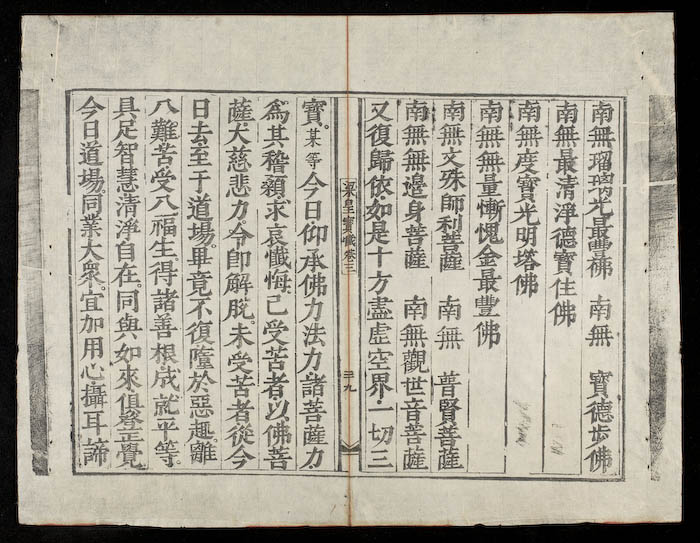 南無瑠璃光最豐佛　南無　寶德步佛
南無最清淨德寶住佛
南無度寶光明塔佛
南無無量慚愧金最豐佛
南無文殊師利菩薩　南無　普賢菩薩
南無無邊身菩薩　南無觀世音菩薩
又復歸依如是十方盡虛空界一切三
梁皇寶懺卷三　三九
寶。某等今日仰承佛力法力諸菩薩力
爲其稽顙求哀懺悔。已受苦者以佛菩
薩大慈悲力。令卽解脫未受苦者從今
日去至于道場。畢竟不復墮於惡趣。離
八難苦受八福生。得諸善根。成就平等。
具足智慧清淨自在。同與如來俱登正覺
今日道場。同業大衆。宜加用心。攝耳諦